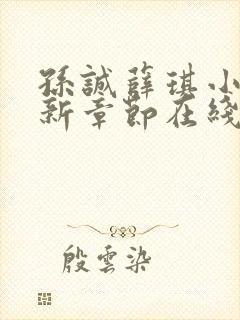 孫誠薛琪小
新章節在綫
殷雲染